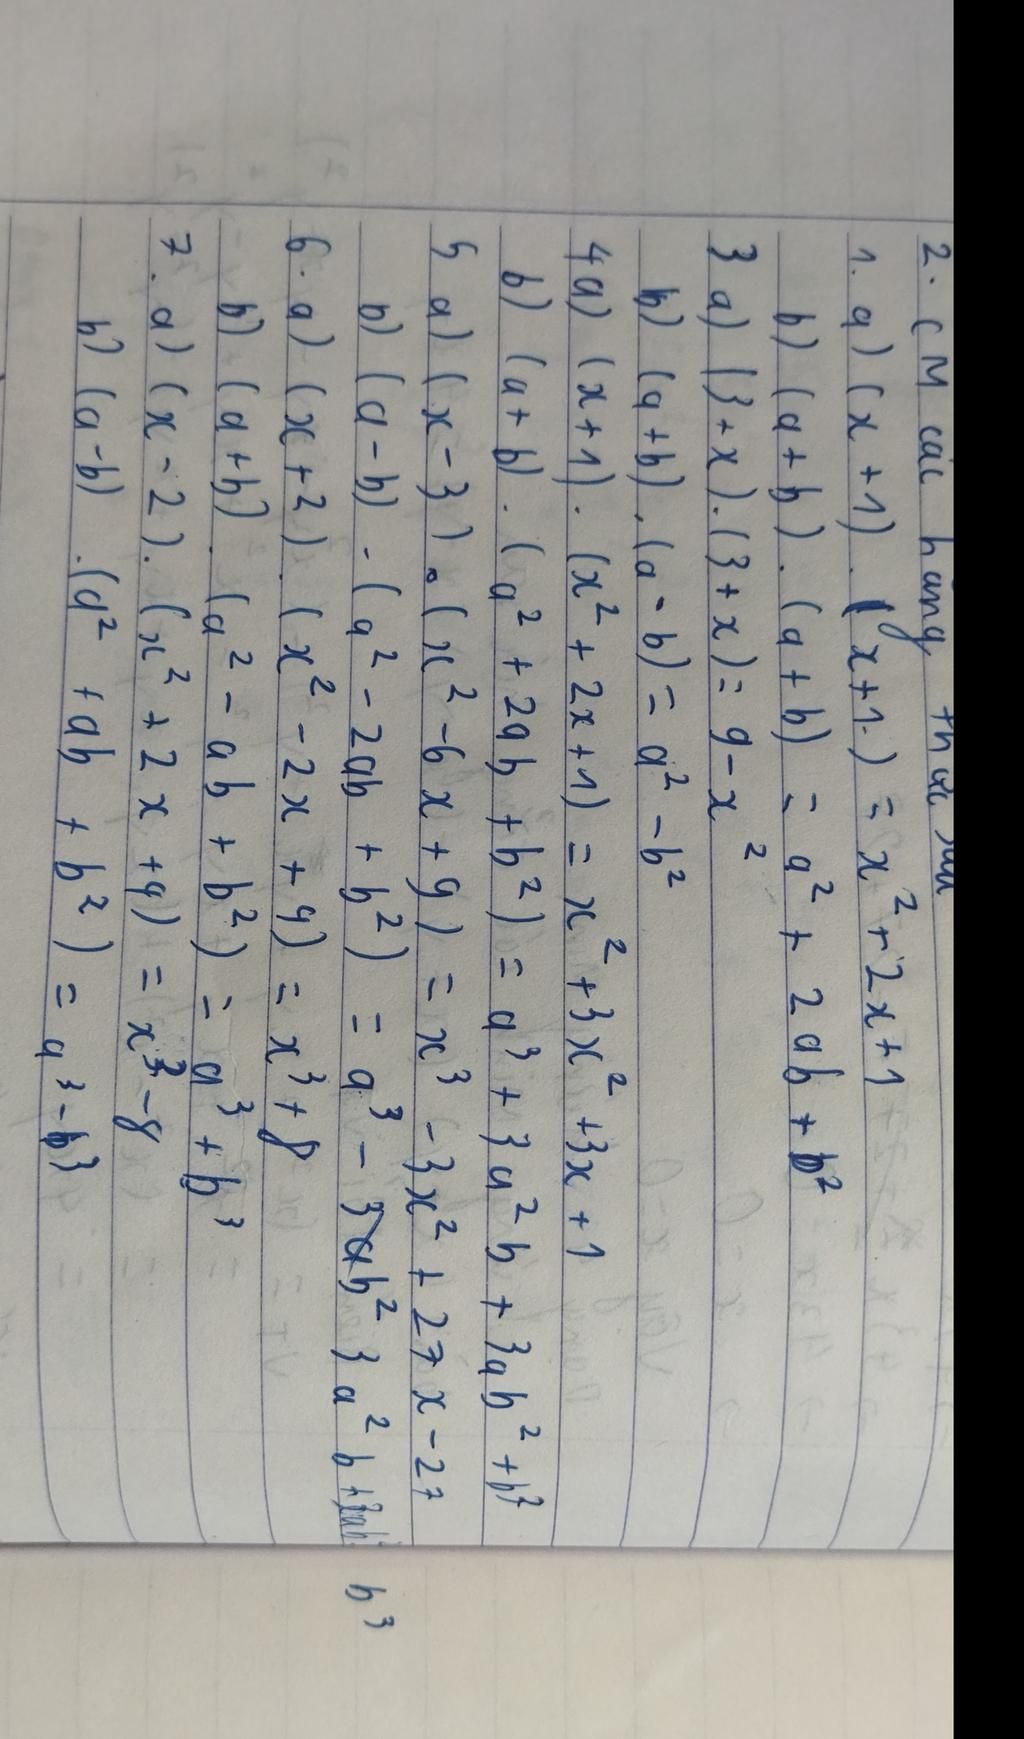 2. CM các hằng thức sau
1. a) (x + 1) . (x + 1) = x² + 2x + 1
b) (a + b) . (a + b) = a² + 2ab + b²
3 a) (3 + x) . (3 + x) = 9 - x²
b) (a + b) . (a - b) = a² - b²
4 a) (x + 1) . (x² + 2x + 1) = x² + 3x² + 3x + 1
b) (a + b) . (a² + 2ab + b²) = a³ + 3a²b + 3ab² + b³
5 a) (x - 3) . (x² - 6x + 9) = x³ - 3x² + 27x - 27
b) (a - b) - (a² - 2ab + b²) = a³ - 3ab² 3a²b + 3ab² b³
6. a) (x + 2) . (x² - 2x + 4) = x³ + 8
b) (a + b) . (a² - ab + b²) = a³ + b³
7. a) (x - 2) . (x² + 2x + 4) = x³ - 8
b) (a - b) . (a² + ab + b²) = a³ - b³